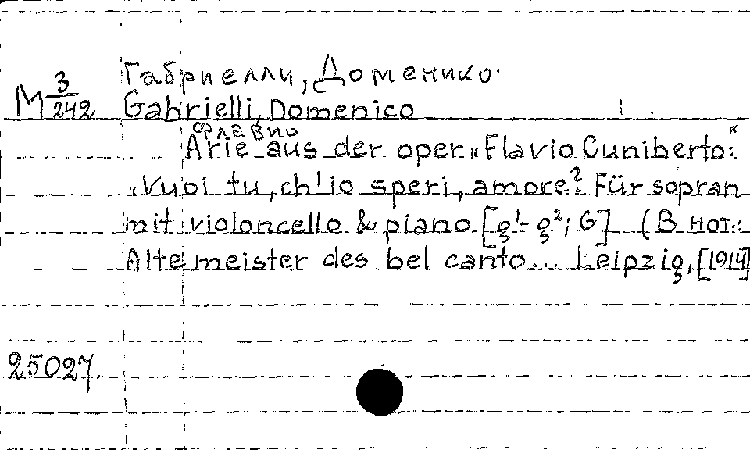 Габриелли, Доменико.
М 3/242 Gabrielli, Domenico
Флавио
Arie aus der oper „Flavio Cuniberto:"
„Vuoi tu, ch'io speri, amore? Für sopran
mit violoncello & piano. [g¹-g²; G] (В нот.:
Altemeister des bel canto... Leipzig, [1914]
25027.